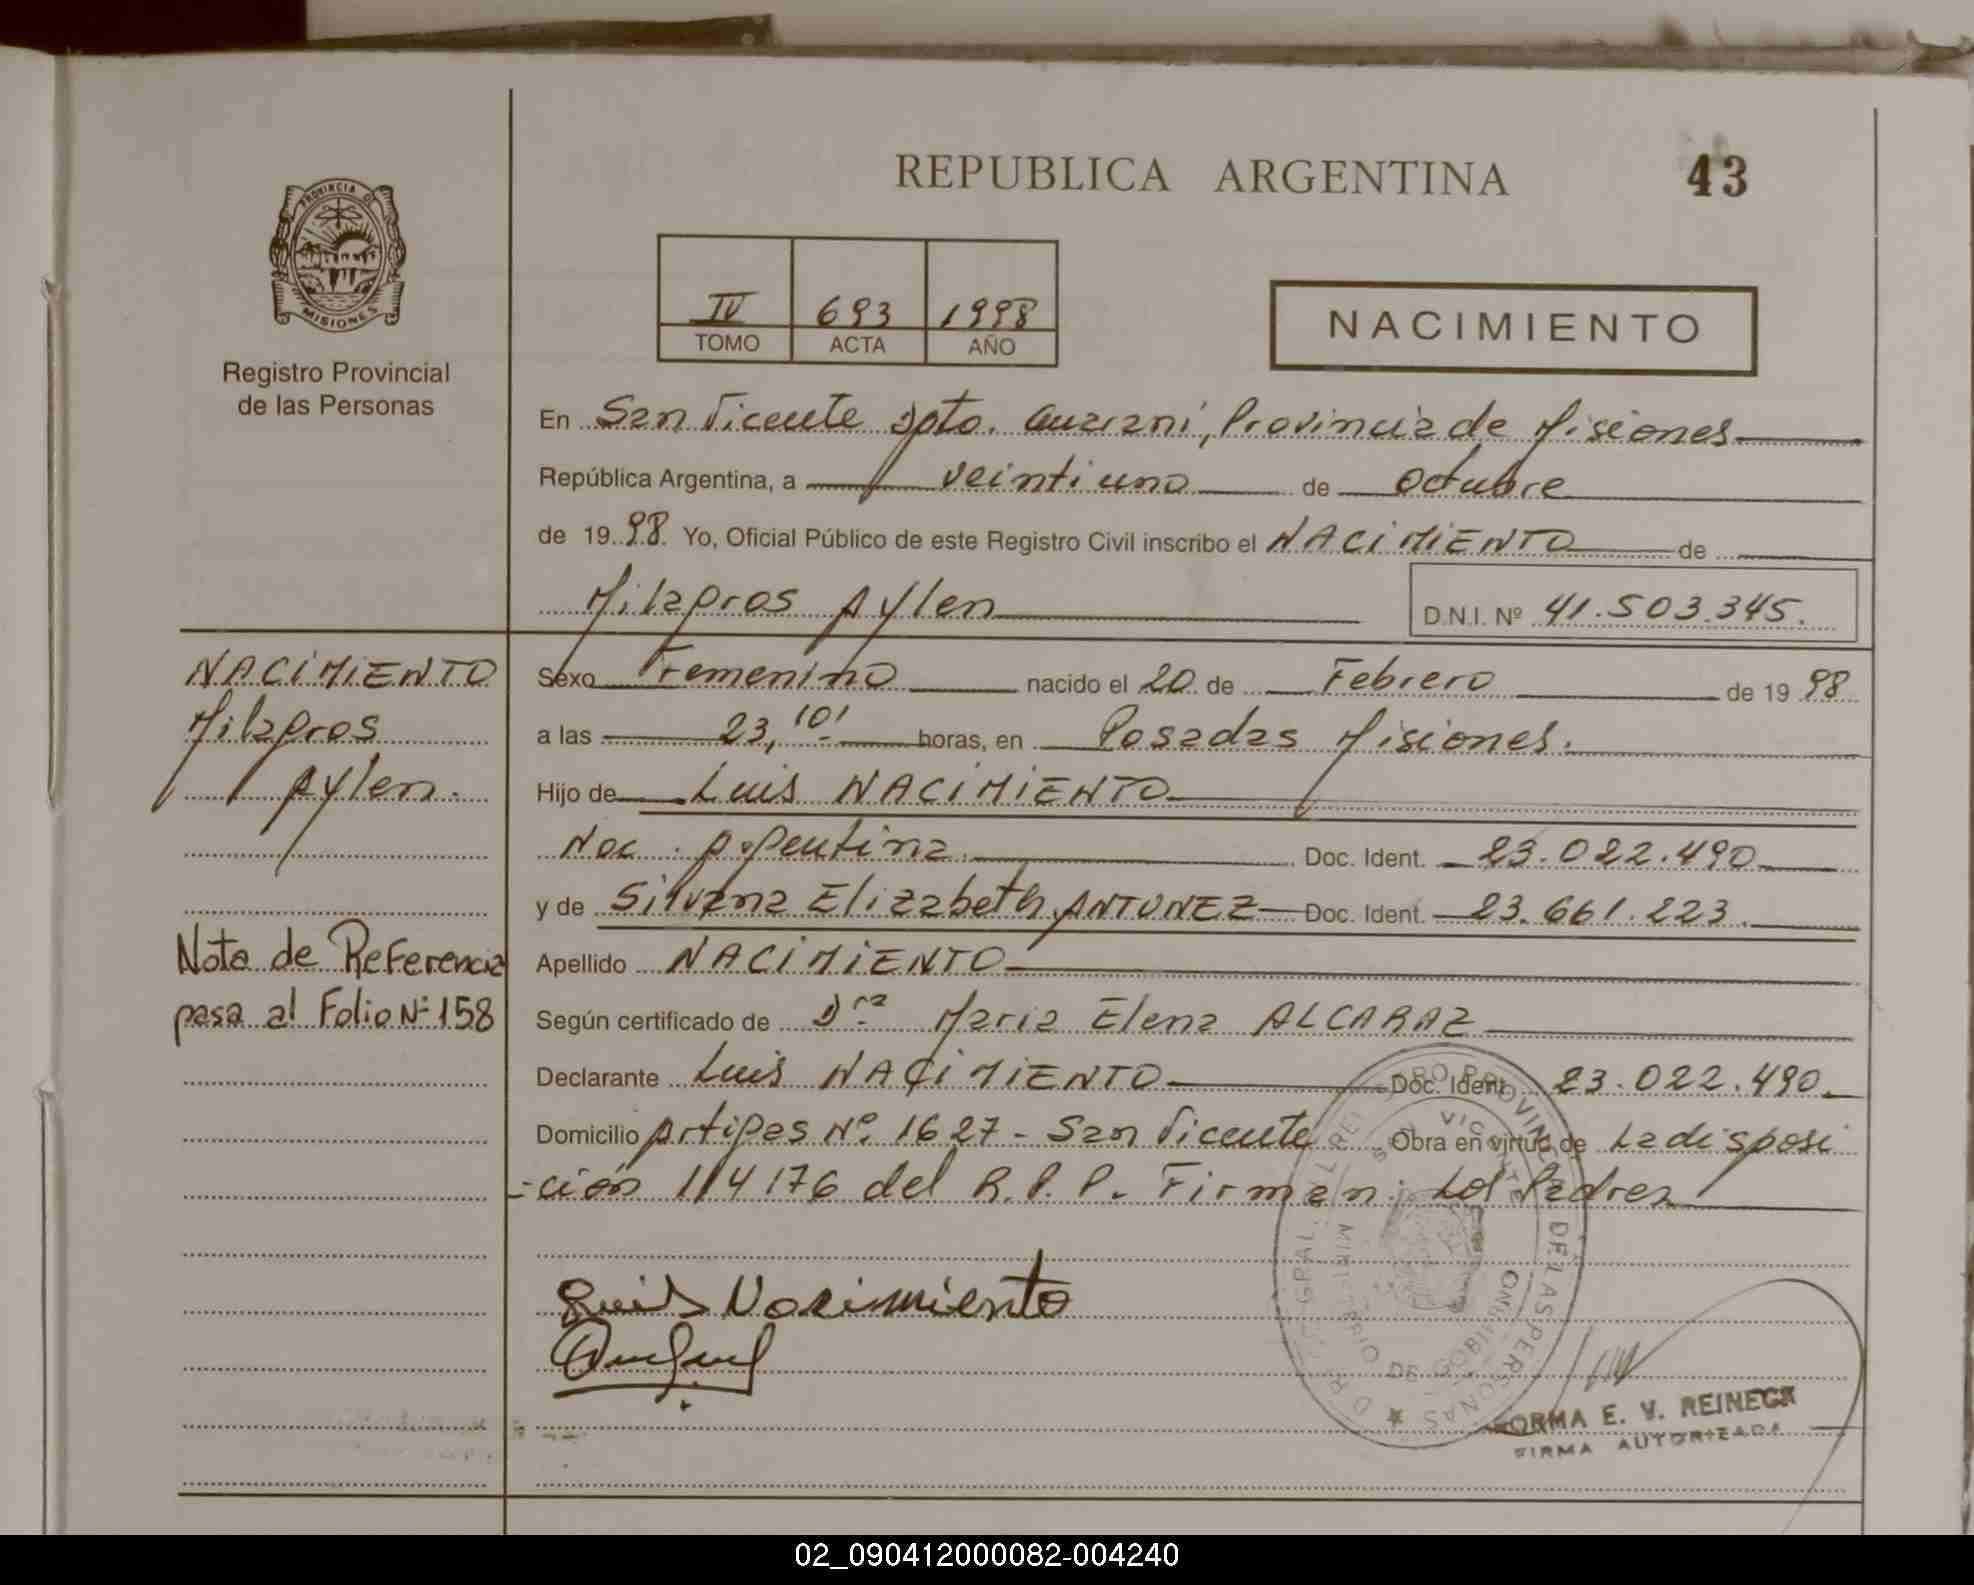 REPUBLICA ARGENTINA
43
PROVINCIA DE
MISIONES
Registro Provincial
de las Personas
IV 693 1998
TOMO ACTA AÑO
NACIMIENTO
En San Vicente Dpto. Guarani, Provincia de Misiones
República Argentina, a veintiuno de Octubre
de 1998 Yo, Oficial Público de este Registro Civil inscribo el NACIMIENTO de
Milagros Aylen D.N.I. Nº 41.503.345.
Sexo Femenino nacido el 20 de Febrero de 1998
a las 23,10' horas, en Posadas Misiones.
Hijo de Luis NACIMIENTO
Nac. Argentina Doc. Ident. 23.022.490
y de Silvana Elizabeth ANTUNEZ Doc. Ident. 23.661.223.
Apellido NACIMIENTO
Según certificado de Dra Maria Elena ALCARAZ
Declarante Luis NACIMIENTO Doc. Ident. 23.022.490.
Domicilio Artigas Nº 1627 - San Vicente Obra en virtud de La disposi
-ción 114176 del R.P.P. Firman: Los Padres
Luis Nacimiento
NACIMIENTO
Milagros
Aylen.
Nota de Referencia
pasa al Folio Nº 158
PROVINCIAL DE LAS PERSONAS
VICENTE
MINISTERIO DE GOBIERNO
NORMA E. V. REINECK
FIRMA AUTORIZADA
02_090412000082-004240